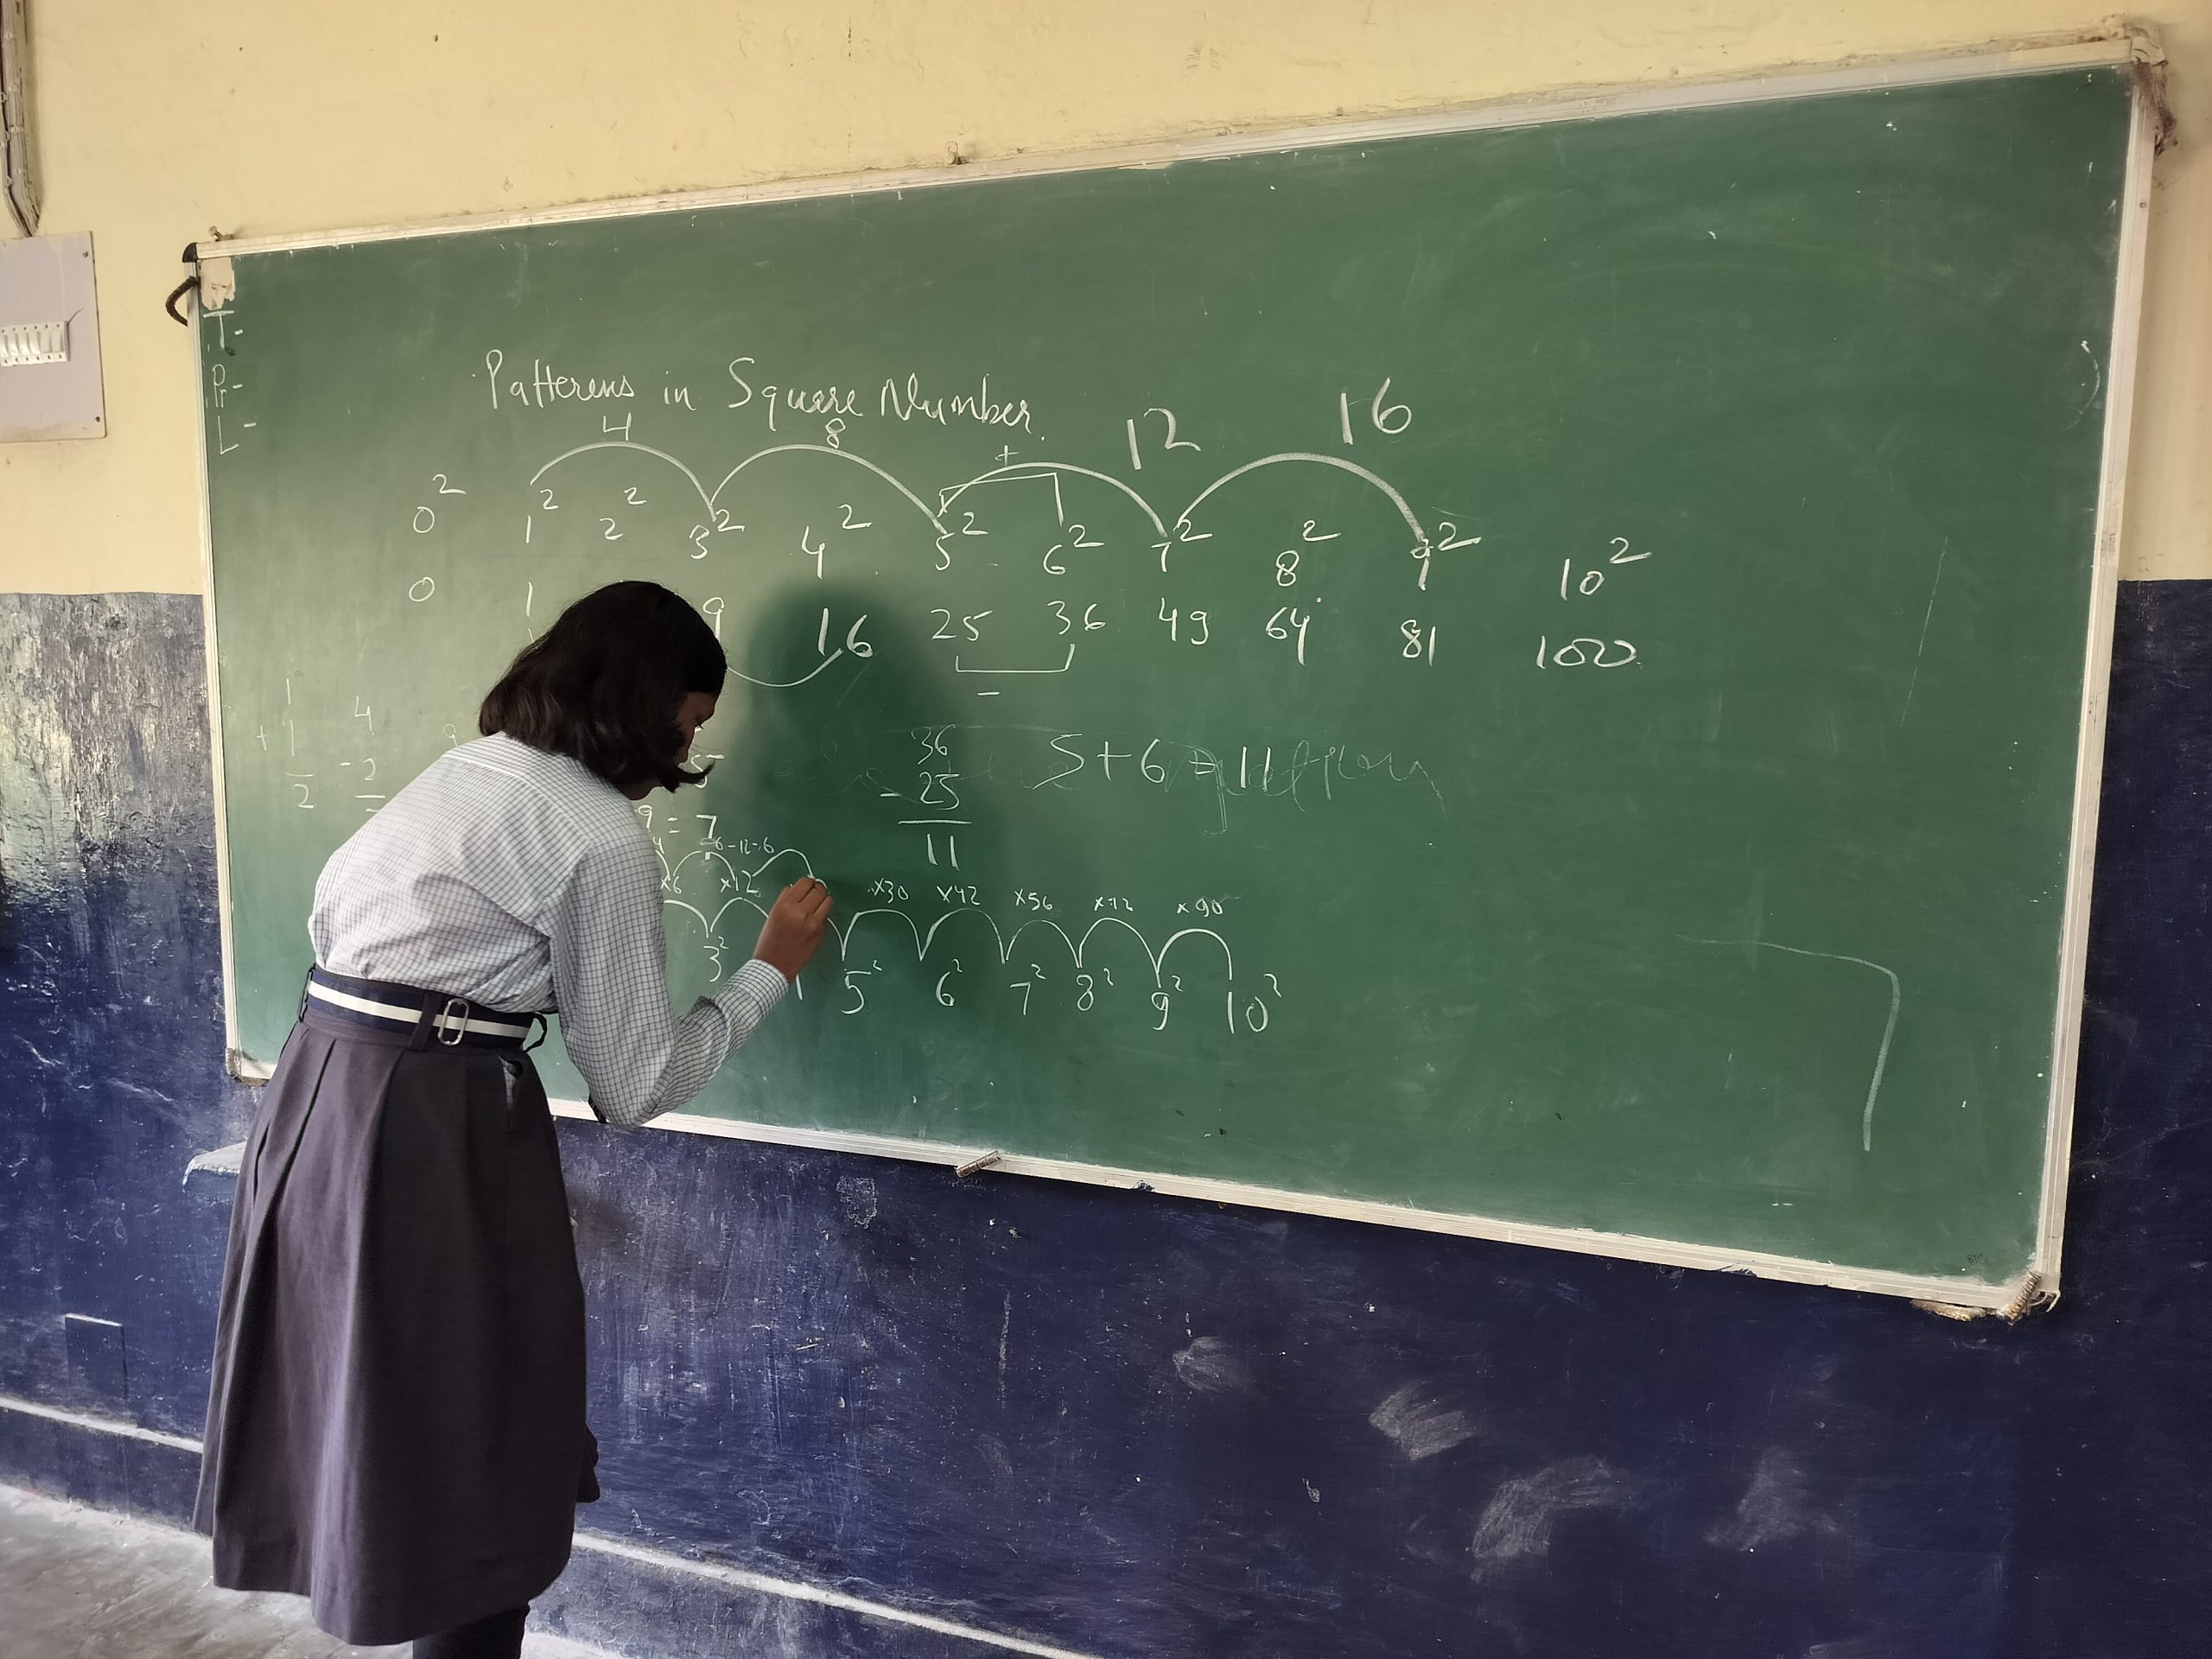 T:-
Pr-
L-
Patterens in Square Number.
4 8 + 12 16
0² 1² 2² 3² 4² 5² 6² 7² 8² 9² 10²
0 1 9 16 25 36 49 64 81 100
-
1 4 9
+ 1 - 2 5
2
36
- 25
11
5+6=11
9 = 7
6-12=6
x6 x12 x30 x42 x56 x72 x90
3² 5² 6² 7² 8² 9² 10²